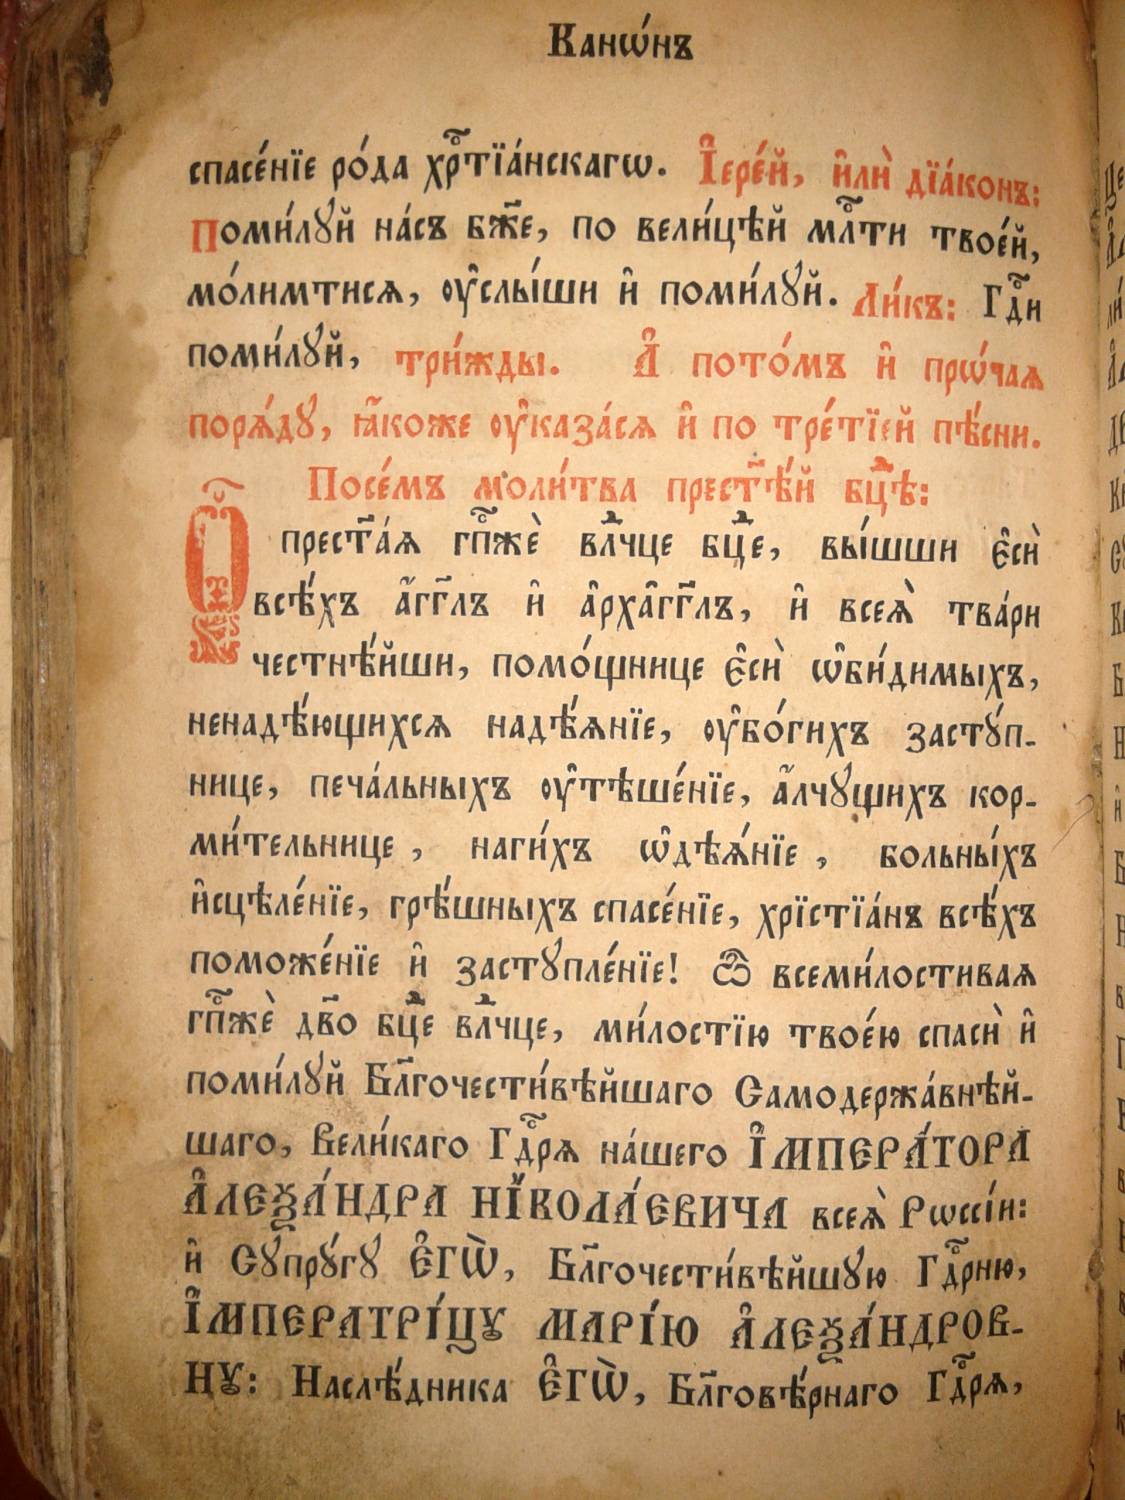 Канѡ́нъ
спасе́нїе ро́да хрⷭ҇тїа́нскагѡ. І҆ере́й, и҆лѝ дїа́конъ:
Поми́лꙋй на́съ бж҃е, по вели́цѣй млⷭ҇ти твое́й,
мо́лимтися, ᲂу҆слы́ши и҆ поми́лꙋй. Ли́къ: Гдⷭ҇и
поми́лꙋй, три́жды. А҆ пото́мъ и҆ прѡ́чая
поря́дꙋ, ꙗ҆́коже ᲂу҆каза́ся и҆ по тре́тїей пѣ́сни.
Посе́мъ моли́тва прест҃ѣ́й бцⷣѣ:
Ѽ прест҃а́ѧ гпⷭ҇жѐ влⷣчце бцⷣе, вы́шши є҆сѝ
всѣ́хъ а҆́гг҃лъ и҆ а҆рха́гг҃лъ, и҆ всеѧ̀ тва́ри
честнѣ́йши, помо́щнице є҆сѝ ѡ҆би́димыхъ,
ненадѣ́ющихсѧ надѣ́ѧнїе, ᲂу҆бо́гихъ застꙋ́п-
нице, печа́льныхъ ᲂу҆тѣше́нїе, а҆́лчꙋщихъ кор-
ми́тельнице, наги́хъ ѡ҆дѣѧ́нїе, больны́хъ
и҆сцѣле́нїе, грѣ́шныхъ спасе́нїе, хрїстїа́нъ всѣ́хъ
поможе́нїе и҆ застꙋпле́нїе! Ѽ всеми́лостиваѧ
гпⷭ҇жѐ дв҃о бцⷣе влⷣчце, ми́лостїю твое́ю спасѝ и҆
поми́лꙋй Бл҃гочести́вѣйшаго Самодержа́внѣй-
шаго, Вели́каго Гдⷭ҇рѧ на́шего І҆МПЕРА́ТОРА
А҆ЛЕѮА́НДРА НІКОЛА́ЕВИЧА всеѧ̀ Рѡссі́и:
и҆ Сꙋпрꙋ́гꙋ Є҆ГѠ̀, Бл҃гочести́вѣйшꙋю Гдⷭ҇рню,
І҆МПЕРАТРІ́ЦꙊ МАРІ́Ю А҆ЛЕѮА́НДРОВ-
НꙊ: Наслѣ́дника Є҆ГѠ̀, Бл҃говѣ́рнаго Гдⷭ҇рѧ,